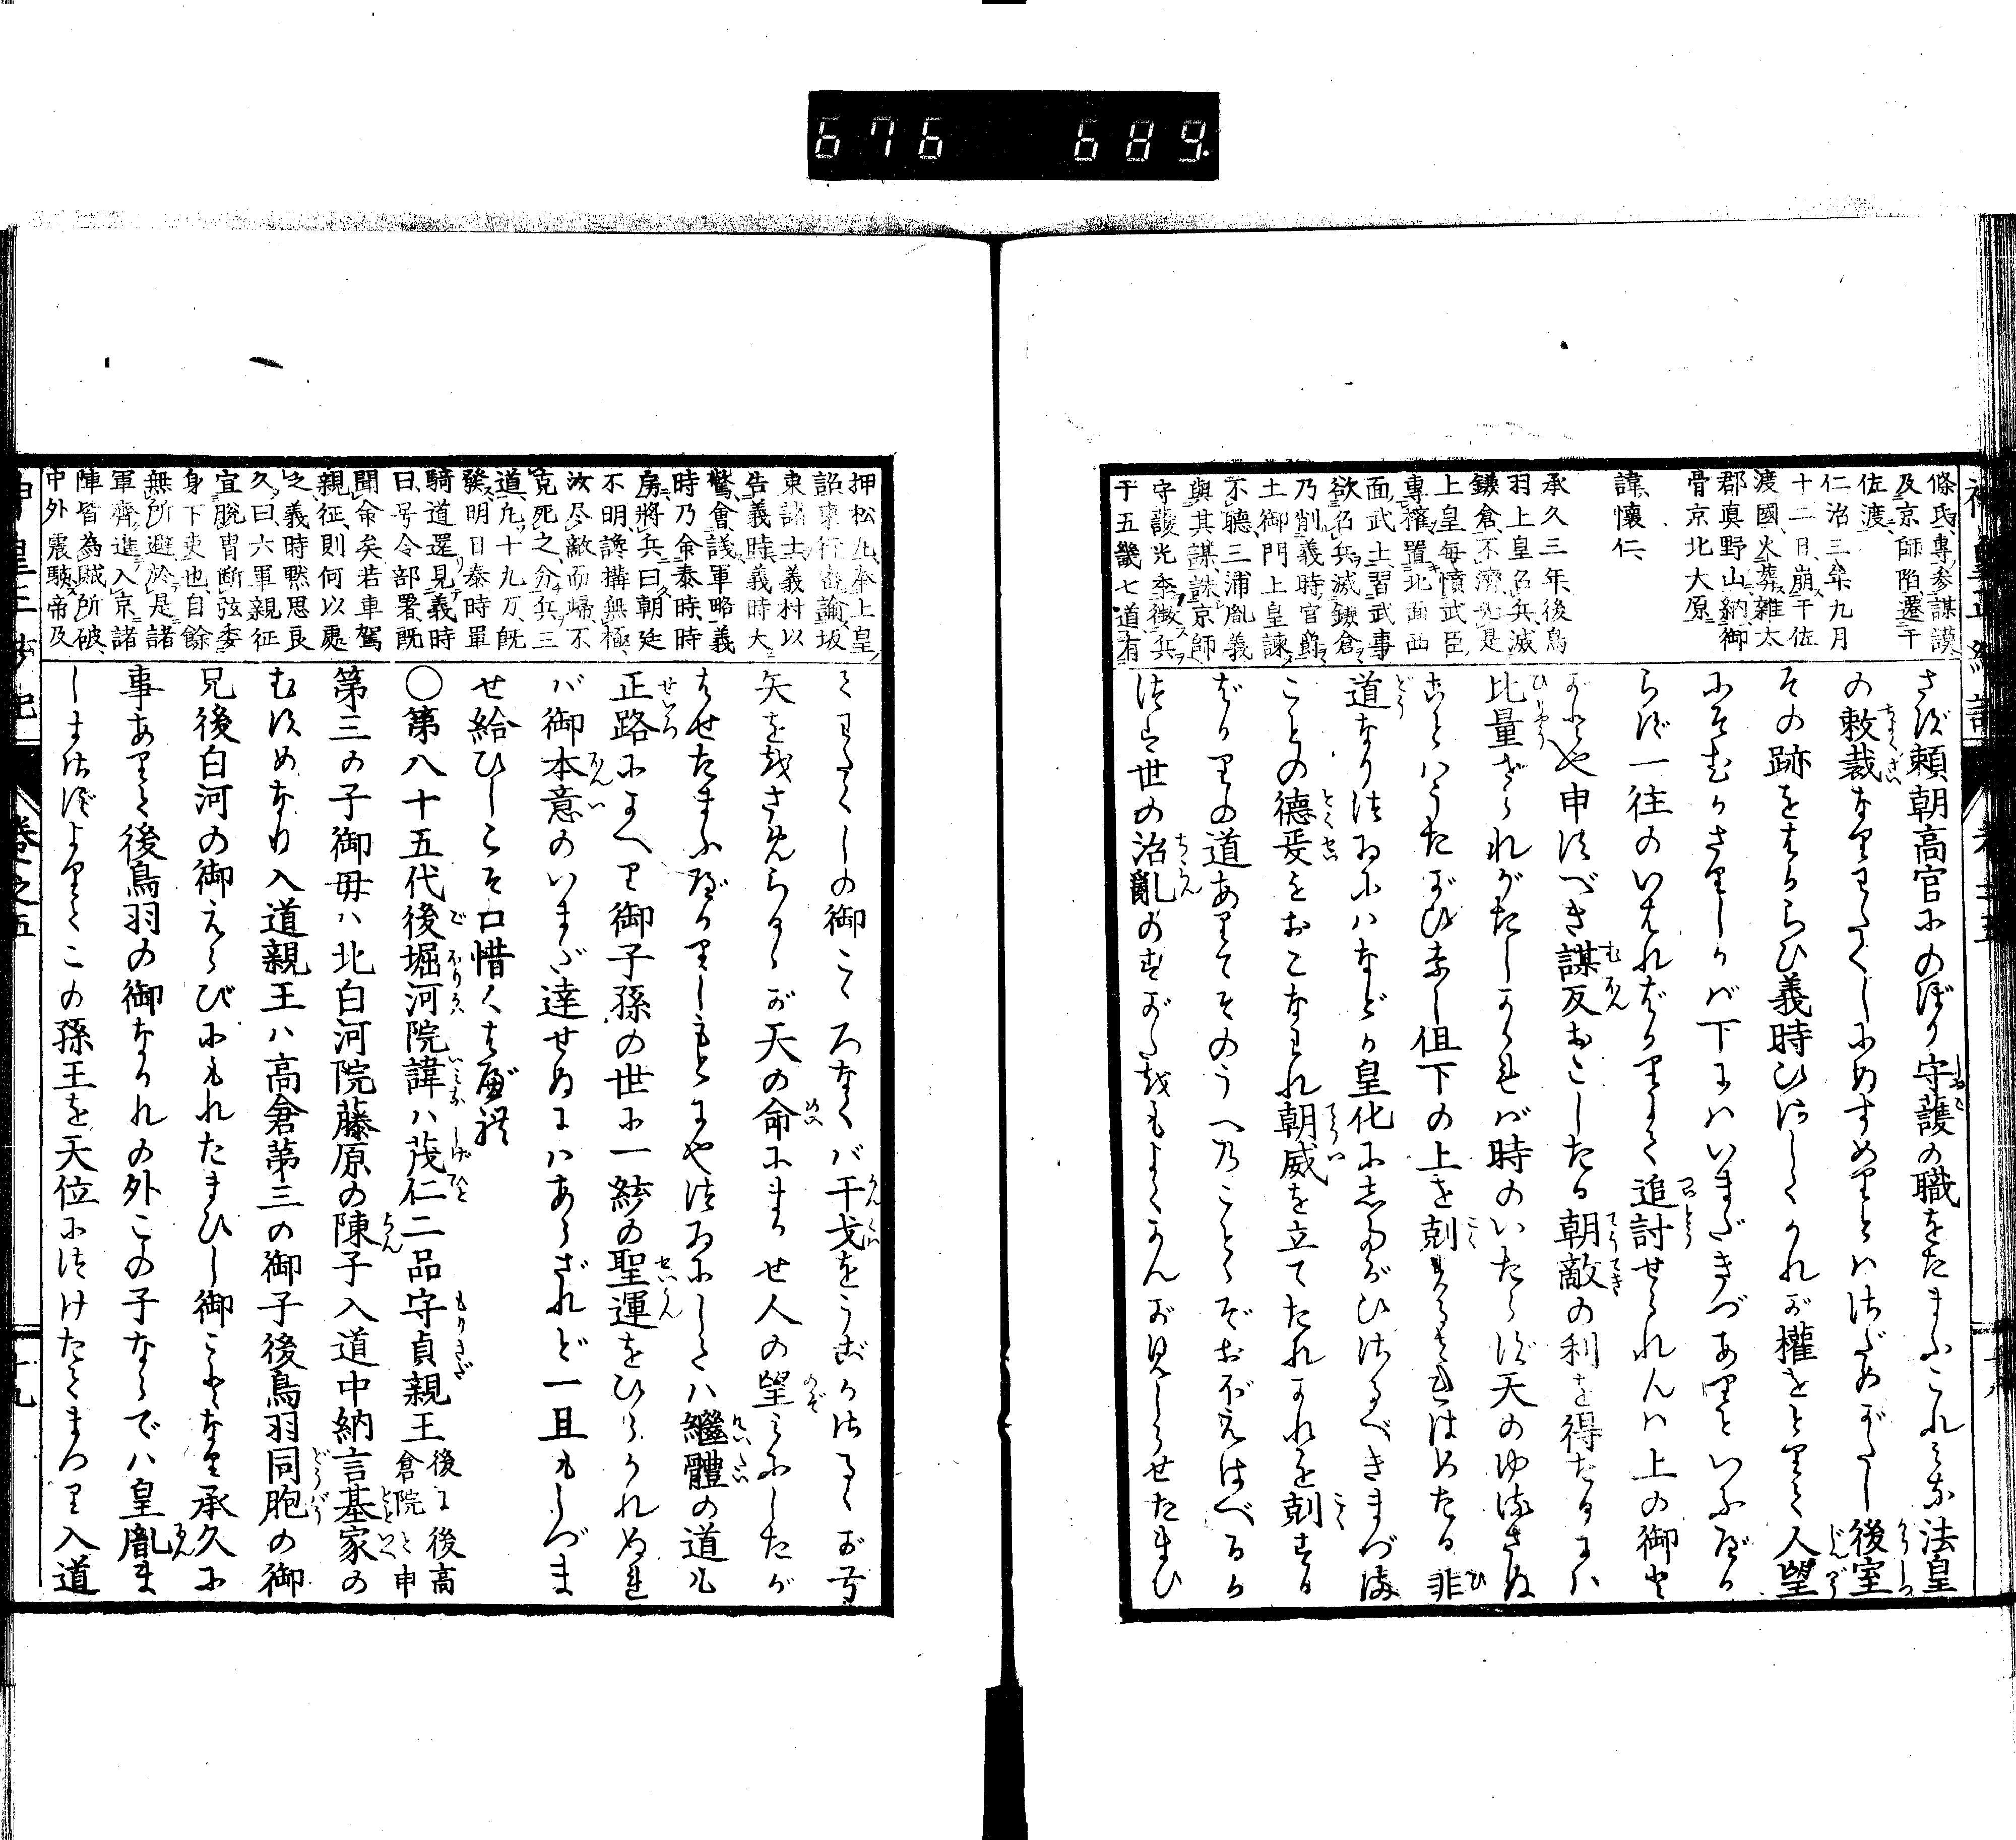 條氏、專參謀謨、
及京師陷、遷于
佐渡、
仁治三年九月
十二日、崩于佐
渡國、火葬雜太
郡真野山、納御
骨京北大原
諱、懷仁、
承久三年後鳥
羽上皇召兵、滅
鎌倉、不濟、先是
上皇每憤武臣、
專權、置北面西
面、武士習武事
欲召兵滅鎌倉
乃削義時官爵
土御門上皇諫
不聽、三浦胤義
與其謀、誅京師
守護光季、徵兵
于五畿七道、有
さず頼朝高官にのぼり守護の職をたまふこれみな法皇
の敕裁なりわたくしにぬすめりとハさだめがたし後室
その跡をはからひ義時ひさしくかれが權をとりて人望
にそむかざりしかバ下にハいまだきづありといふべか
らず一往のいはればかりにて追討せられんハ上の御と
がとや申すべき謀反おこしたる朝敵の利を得たるにハ
比量せられがたしかゝれバ時のいたらず天のゆるさぬ
ことハうたがひなし但下の上を剋するはきはめたる非
道なりつひにハなどか皇化にしたがひさるべきまづま
ことの德政をおこなはれ朝威を立てたれかれを剋する
ばかりの道ありてそのうへのことゝぞおぼえはべるか
つは世の治亂のすがたをもよくかんが見しらせたまひ
押松九、奉上皇
詔東行密諭坂
東諸士、義村以
告義時、義時大
驚、會議軍略、義
時乃命泰時、時
房、將兵曰、朝廷
不明、讒搆無極、
汝尽敵而歸、不
克死之、分兵三
道、九、十九万、既
發、明日泰時單
騎道還、見義時
曰、号令部署、既
聞命矣、若車駕
親征、則何以處
之、義時黙思良
久曰、六軍親征
宜脫冑断弦委
身下吏也、自餘
無所避、於是諸
軍齊進、入京、諸
陣皆為賊所破、
中外震駭、帝及
てわたくしの御こゝろなくバ干戈をうごかさるゝか弓
矢ををさめらるゝか天の命にまかせ人の望みにしたが
はせたまふべかりしもとにやつひにしてハ繼體の道も
正路にかへり御子孫の世に一統の聖運をひらかれぬれ
バ御本意のいまだ達せぬにハあらざれど一旦もしづま
せ給ひしこそ口惜くはべれ
○第八十五代後堀河院諱ハ茂仁二品守貞親王後に後高倉院と申
第三の子御母ハ北白河院藤原の陳子入道中納言基家の
むすめなり入道親王ハ高倉第三の御子後鳥羽同胞の御
兄後白河の御えらびにもれたまひし御ことなり承久に
事ありて後鳥羽の御ながれの外この子ならでハ皇胤ま
しまさずよりてこの孫王を天位につけたてまつり入道